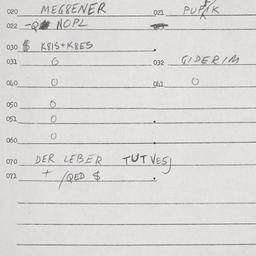 020 MEG8ENER 021 PUPIK
022 NOPL
030 $ K8IS+K8ES
031 0 032 GIDERIM
040 0 041 0
050 0
051 0
060 0
070 DER LEBER TUTVESJ
072 + /QED $